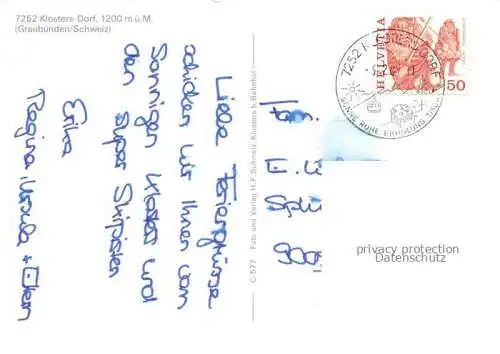 7252 Klosters-Dorf, 1200 m ü. M.
(Graubünden/Schweiz)
Liebe Feriengrüsse
schicken wir Ihnen vom
Sonnigen Klosters und
den super Skipisten
Erika
Regina, Ursula + Eltern
C-577 Foto und Verlag H. F. Schmelz, Klosters b. Bahnhof
7252 KLOSTERS DORF
SONNE RUHE ERHOLUNG
HELVETIA
50
privacy protection
Datenschutz